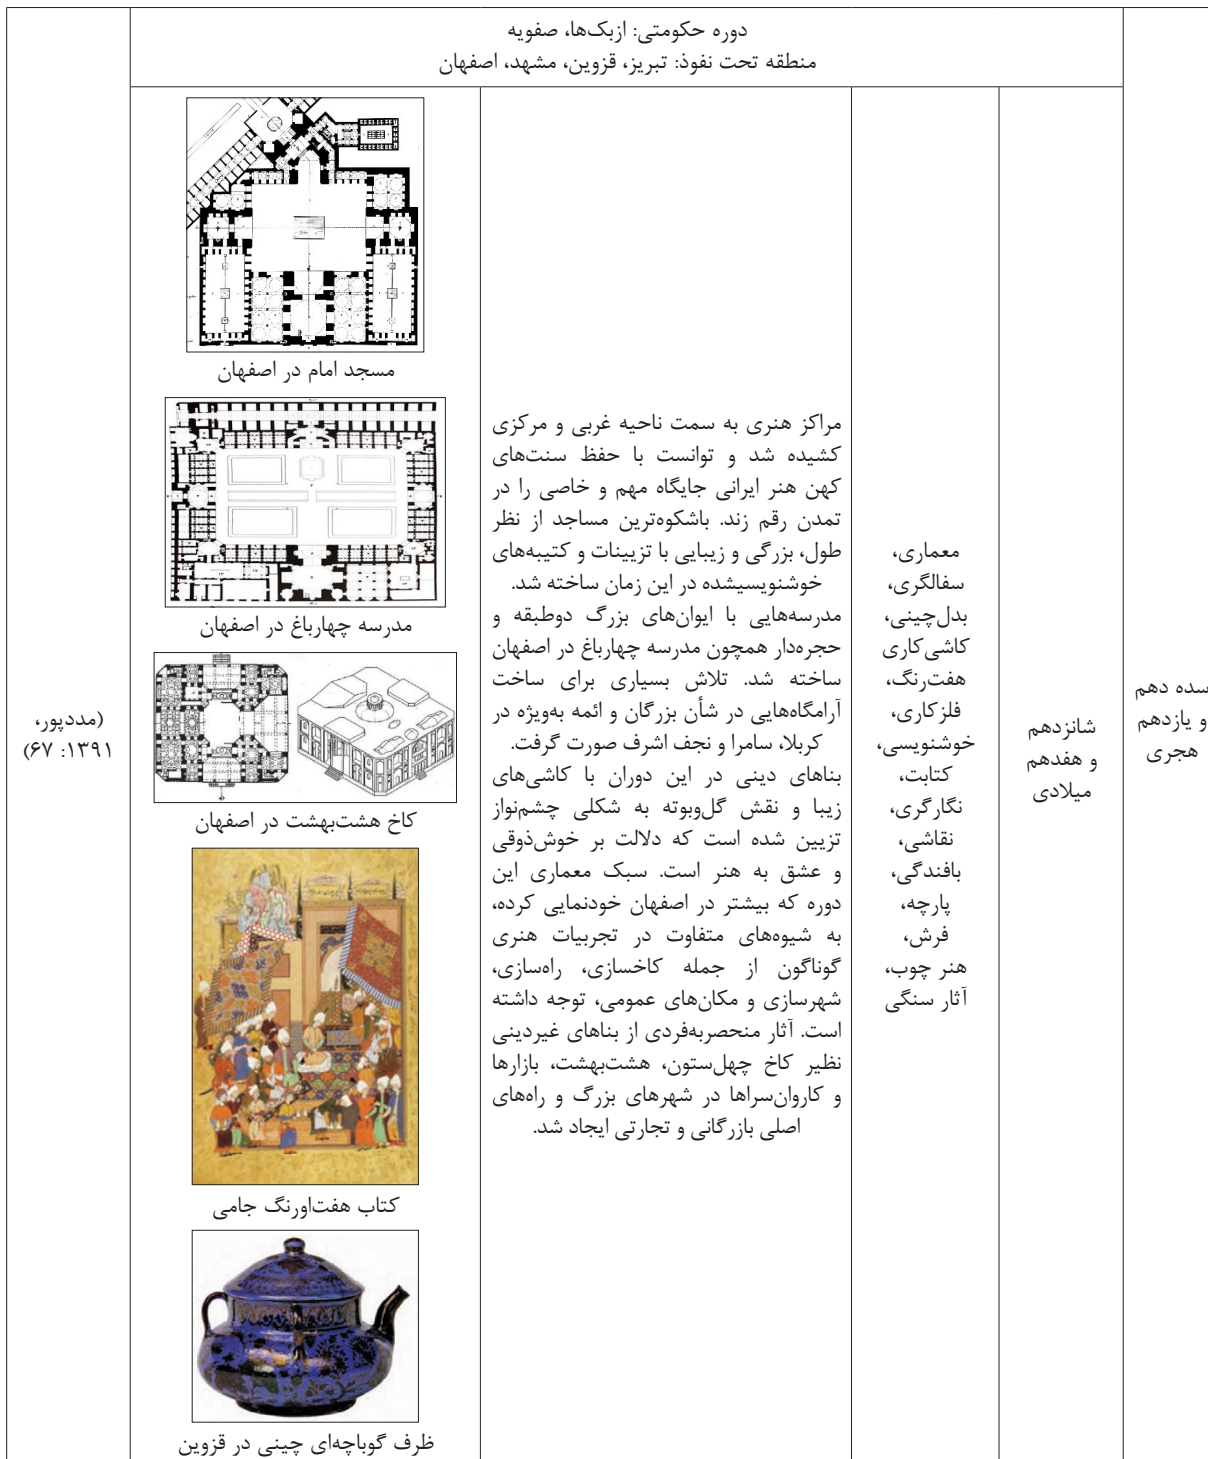 دوره حکومتی: ازبک‌ها، صفویه
منطقه تحت نفوذ: تبریز، قزوین، مشهد، اصفهان
سده دهم
و یازدهم
هجری
شانزدهم
و هفدهم
میلادی
معماری،
سفالگری،
بدل‌چینی،
کاشی‌کاری
هفت‌رنگ،
فلزکاری،
خوشنویسی،
کتابت،
نگارگری،
نقاشی،
بافندگی،
پارچه،
فرش،
هنر چوب،
آثار سنگی
مراکز هنری به سمت ناحیه غربی و مرکزی
کشیده شد و توانست با حفظ سنت‌های
کهن هنر ایرانی جایگاه مهم و خاصی را در
تمدن رقم زند. باشکوه‌ترین مساجد از نظر
طول، بزرگی و زیبایی با تزیینات و کتیبه‌های
خوشنویسیشده در این زمان ساخته شد.
مدرسه‌هایی با ایوان‌های بزرگ دوطبقه و
حجره‌دار همچون مدرسه چهارباغ در اصفهان
ساخته شد. تلاش بسیاری برای ساخت
آرامگاه‌هایی در شأن بزرگان و ائمه به‌ویژه در
کربلا، سامرا و نجف اشرف صورت گرفت.
بناهای دینی در این دوران با کاشی‌های
زیبا و نقش گل‌وبوته به شکلی چشم‌نواز
تزیین شده است که دلالت بر خوش‌ذوقی
و عشق به هنر است. سبک معماری این
دوره که بیشتر در اصفهان خودنمایی کرده،
به شیوه‌های متفاوت در تجربیات هنری
گوناگون از جمله کاخسازی، راه‌سازی،
شهرسازی و مکان‌های عمومی، توجه داشته
است. آثار منحصربه‌فردی از بناهای غیردینی
نظیر کاخ چهل‌ستون، هشت‌بهشت، بازارها
و کاروان‌سراها در شهرهای بزرگ و راه‌های
اصلی بازرگانی و تجارتی ایجاد شد.
مسجد امام در اصفهان
مدرسه چهارباغ در اصفهان
کاخ هشت‌بهشت در اصفهان
کتاب هفت‌اورنگ جامی
ظرف گوباچه‌ای چینی در قزوین
(مددپور،
۱۳۹۱: ۶۷)